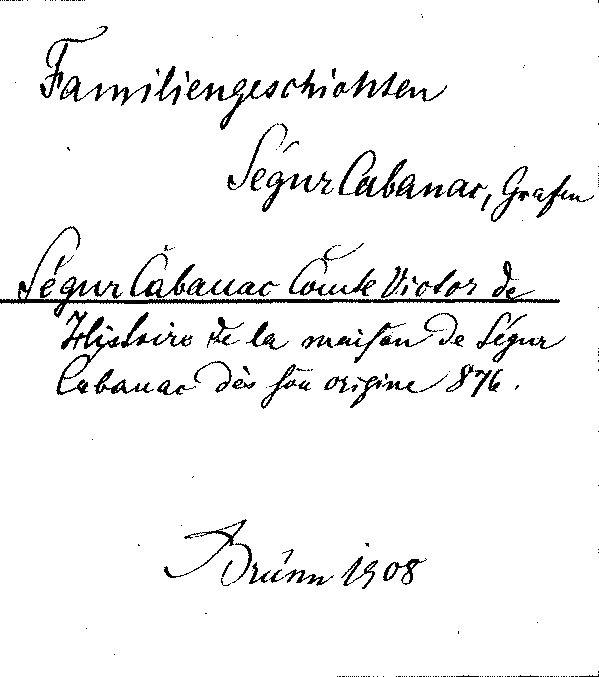 Familiengeschichten
Ségur Cabanac, Grafen
Ségur Cabanac Comte Victor de
Histoire de la maison de Ségur
Cabanac dès son origine 876.
Brünn 1908